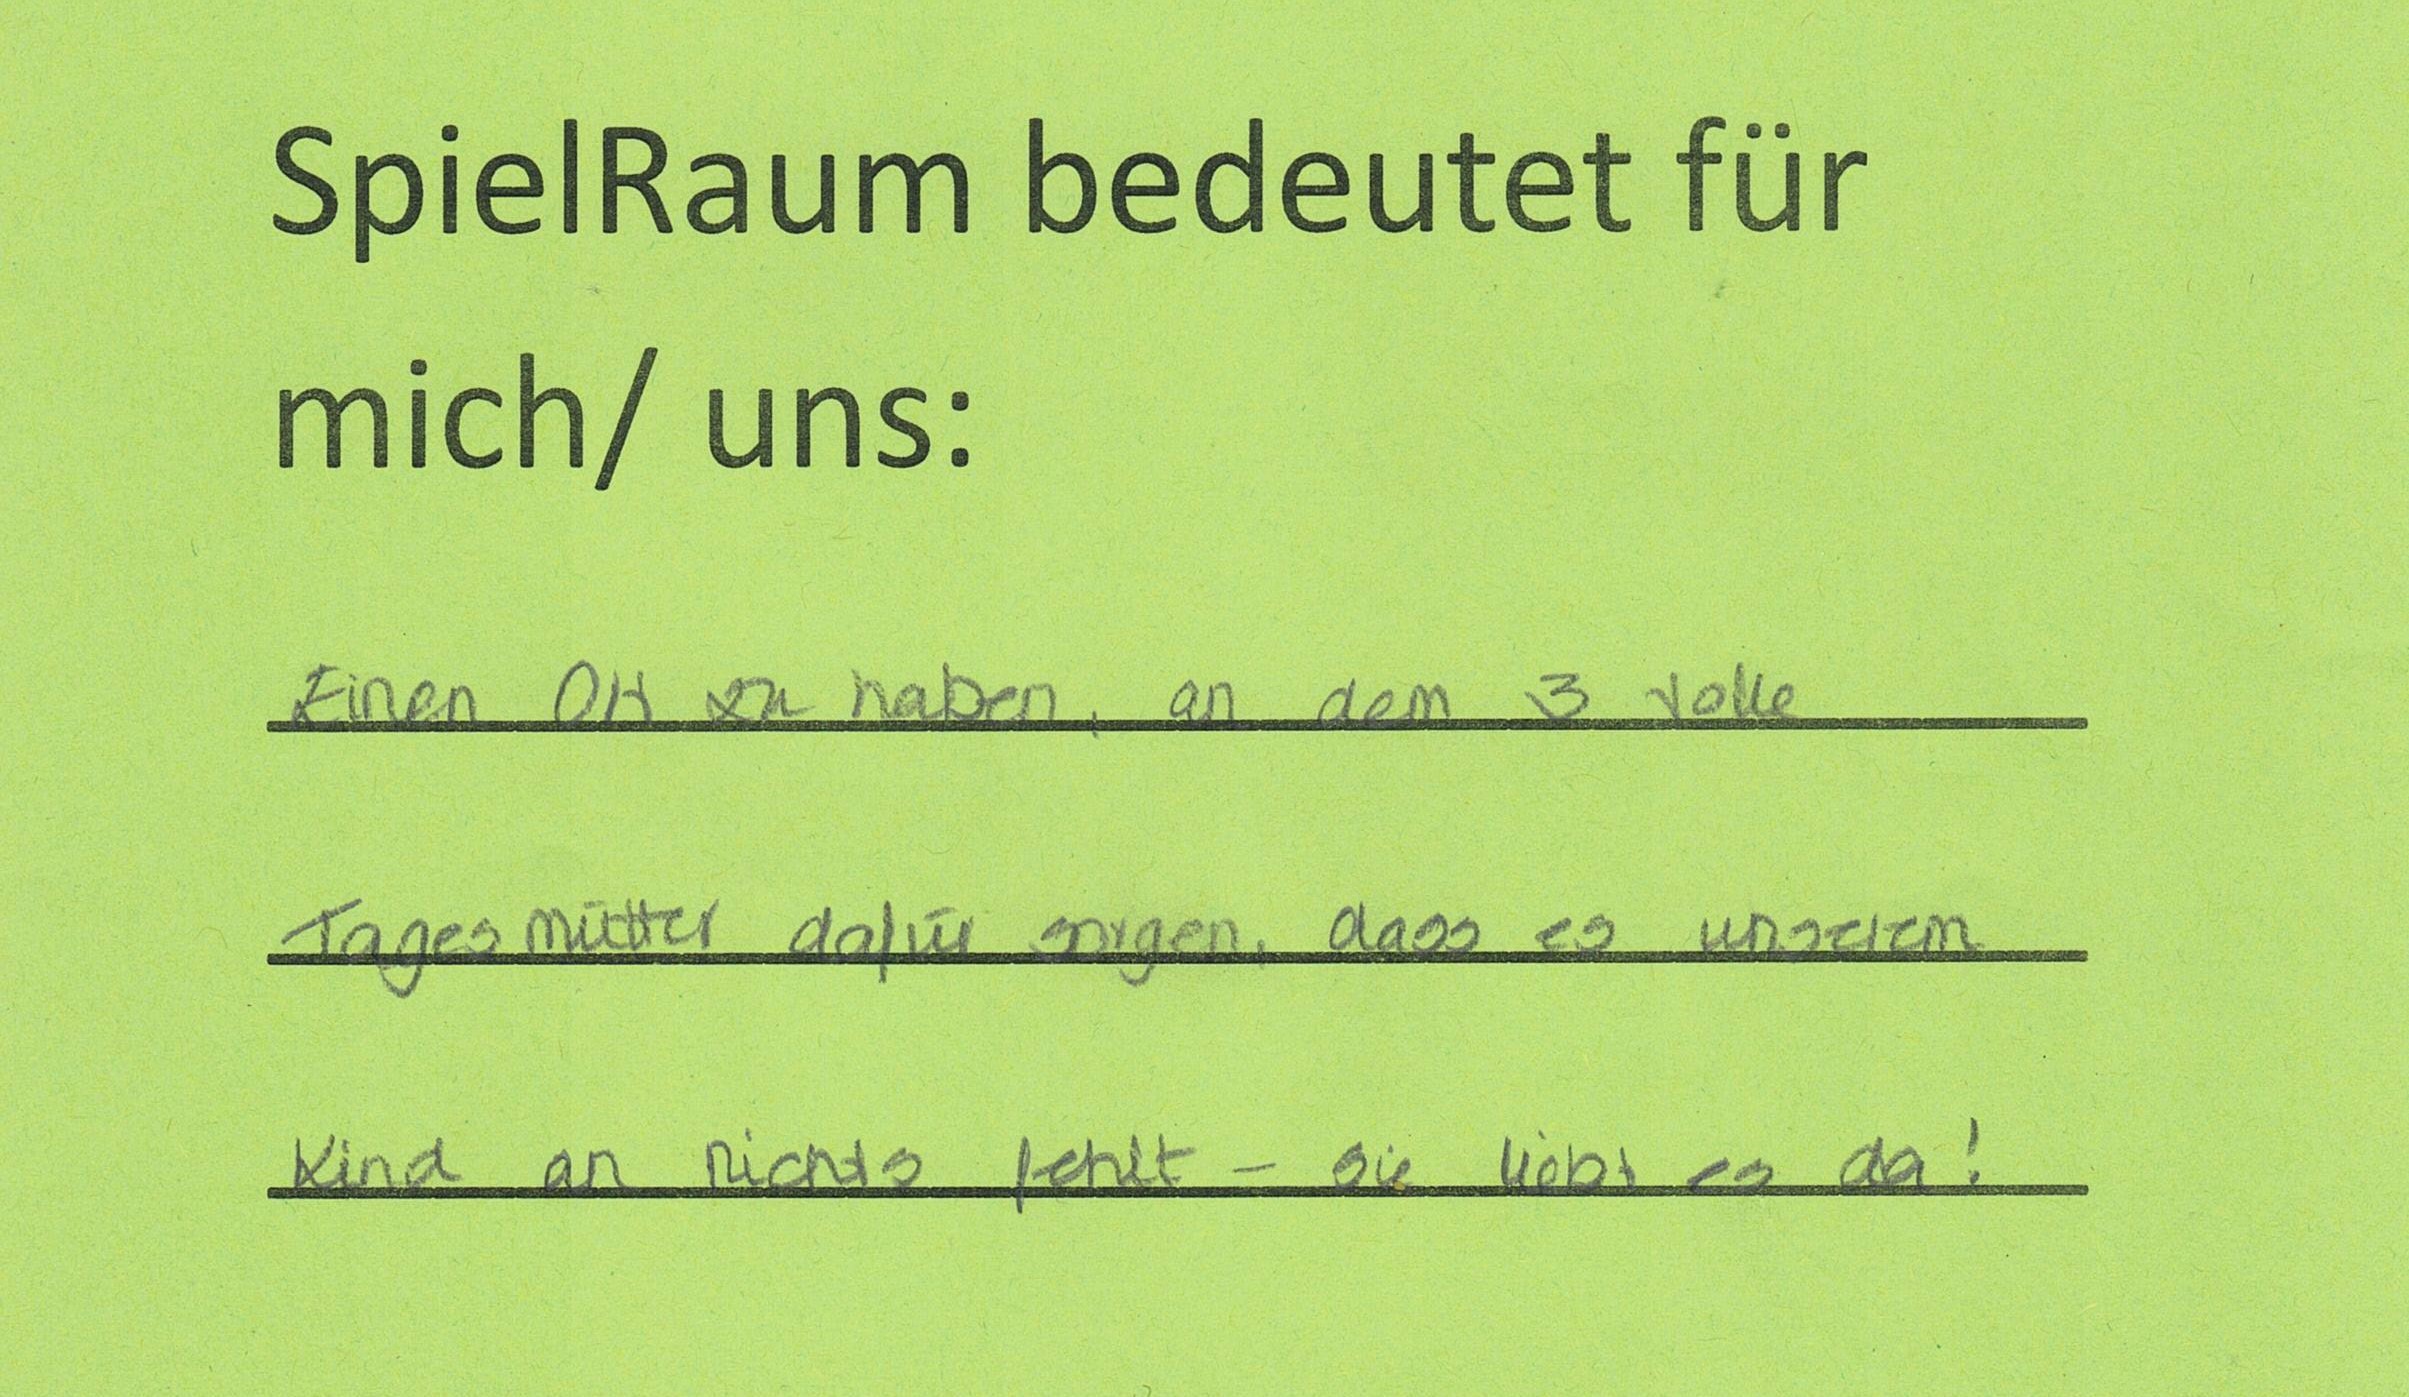 SpielRaum bedeutet für
mich/ uns:
Einen Ort zu haben, an dem 3 tolle
Tagesmütter dafür sorgen, dass es unserem
Kind an nichts fehlt – sie liebt es da!